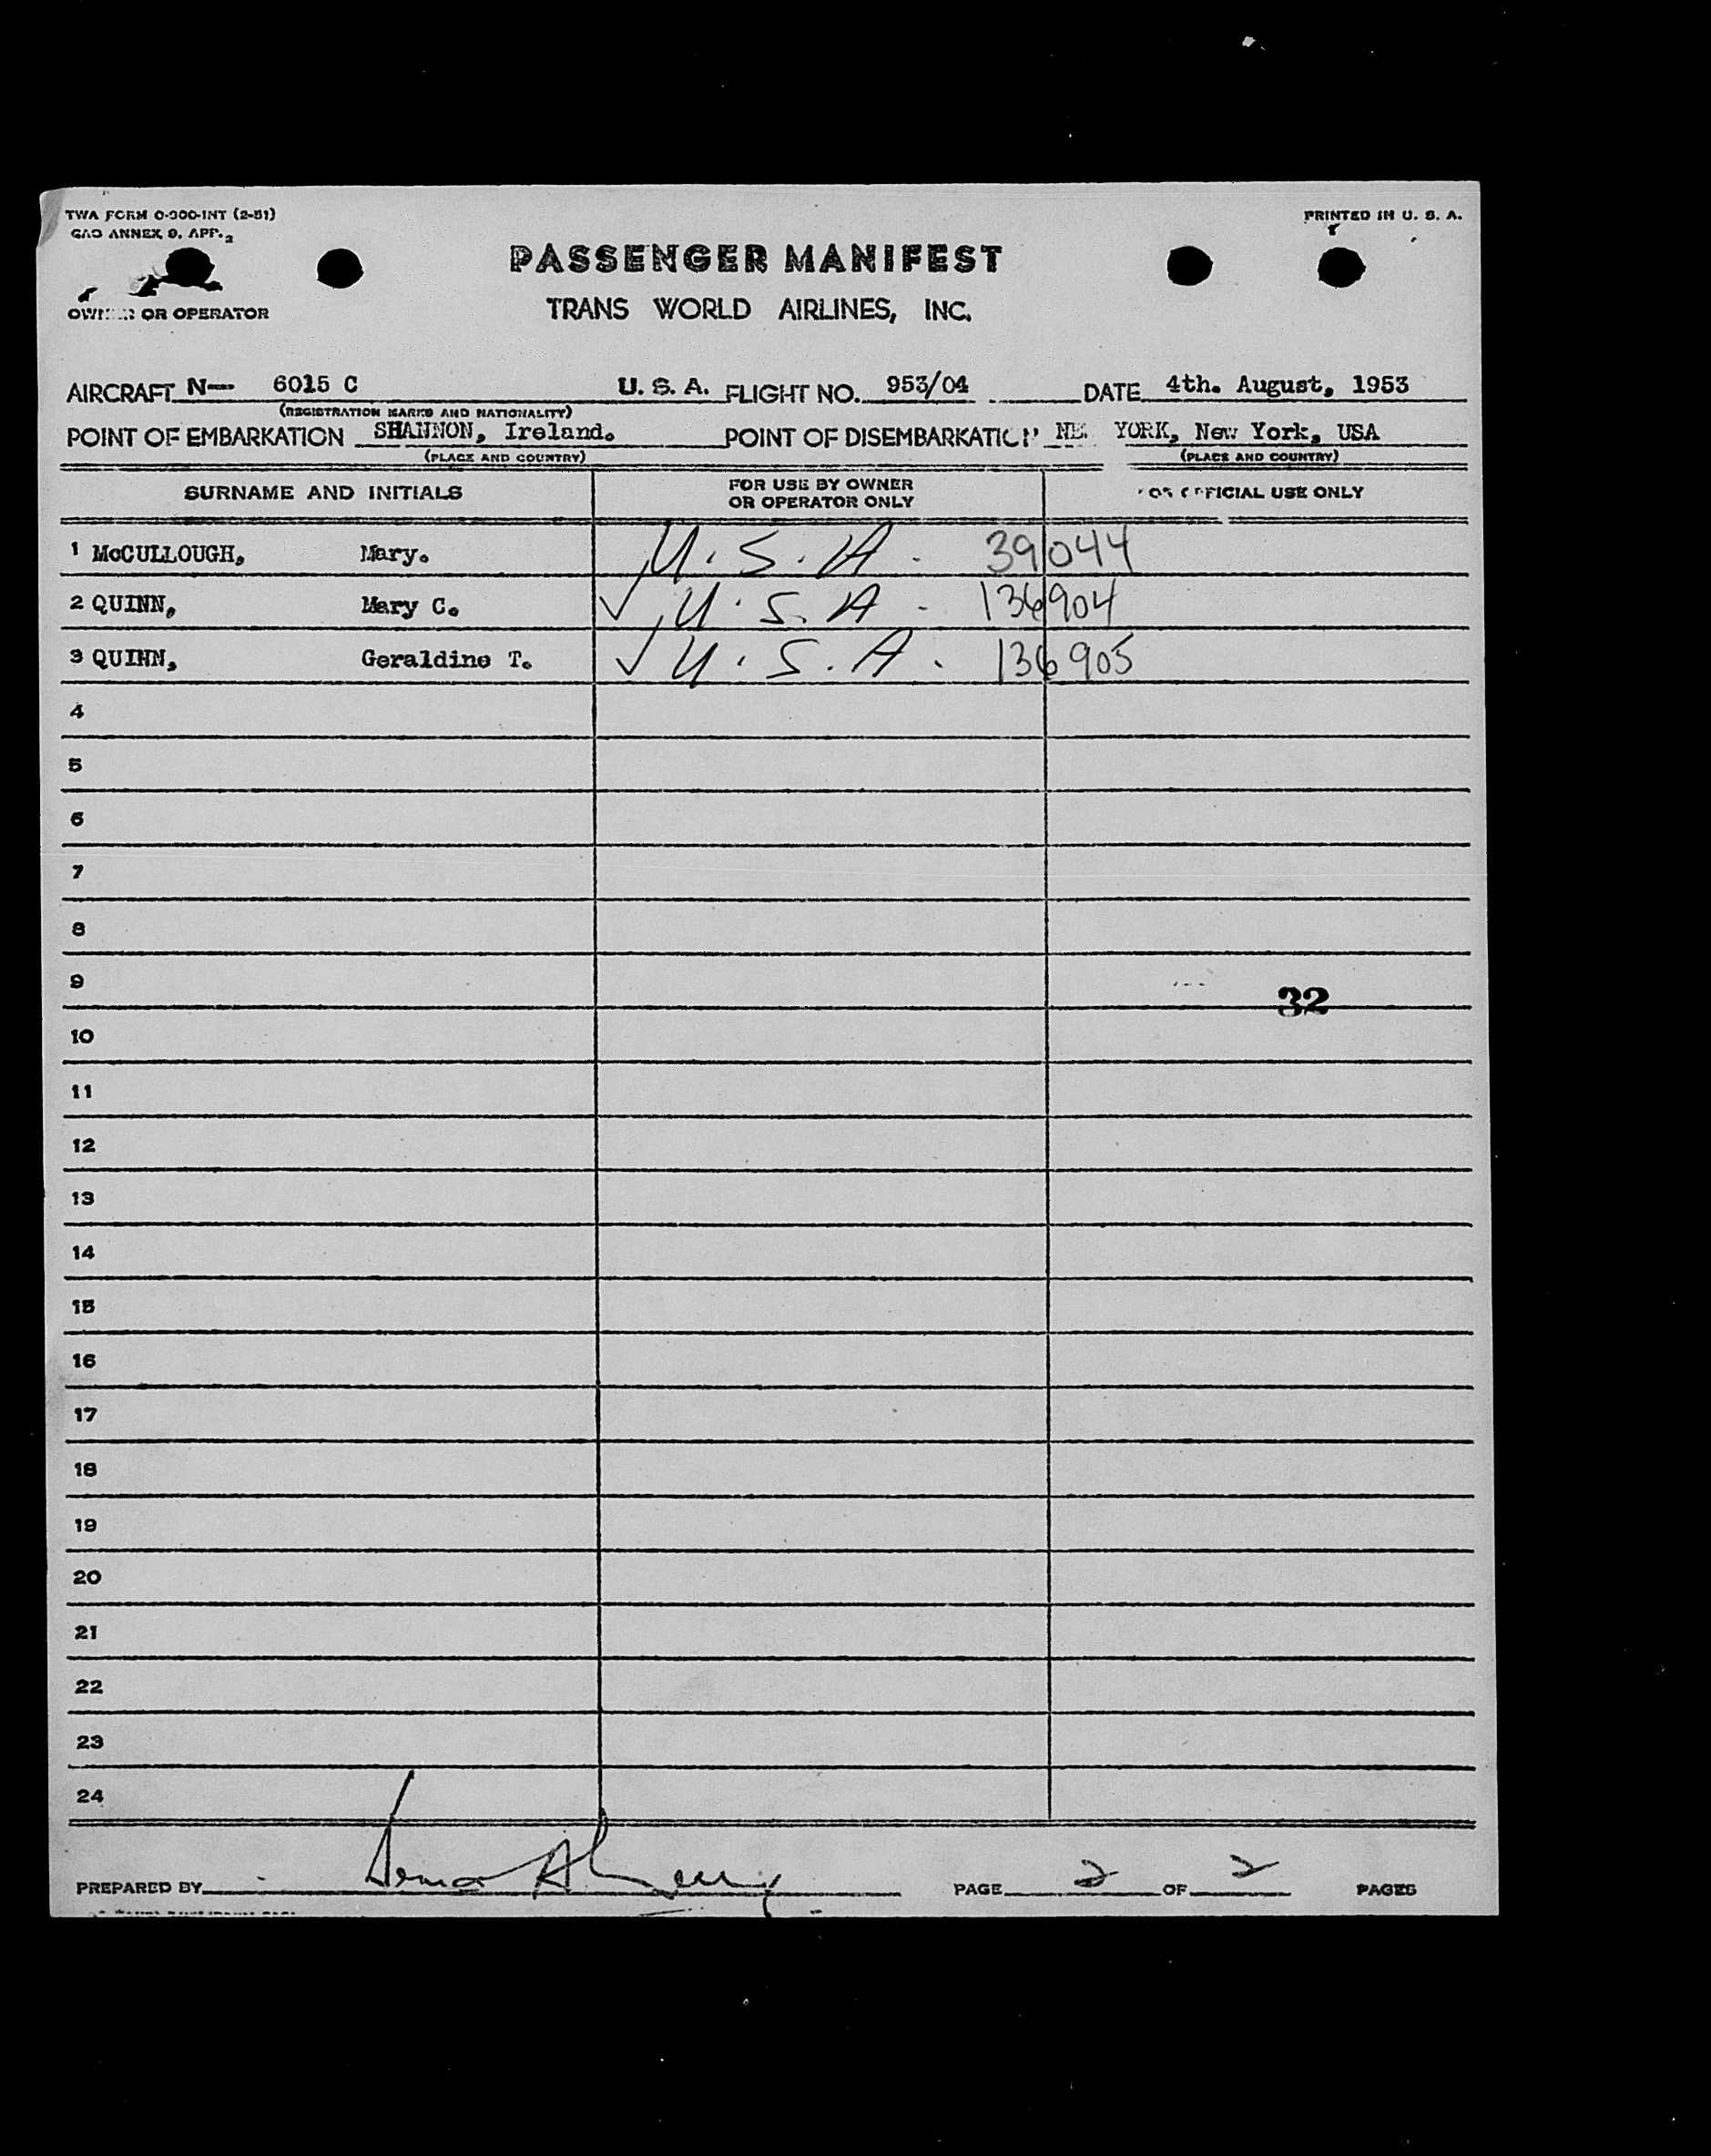 TWA FORM 0-300-INT (2-51)
PRINTED IN U. S. A.
ANNEX 9, APP. 2
PASSENGER MANIFEST
OWNER OR OPERATOR
TRANS WORLD AIRLINES, INC.
AIRCRAFT N— 6015 C U. S. A. FLIGHT NO. 953/04 DATE 4th. August, 1953
(REGISTRATION MARKS AND NATIONALITY)
POINT OF EMBARKATION SHANNON, Ireland. POINT OF DISEMBARKATION NEW YORK, New York, USA
(PLACE AND COUNTRY) (PLACE AND COUNTRY)
SURNAME AND INITIALS FOR USE BY OWNER OR OPERATOR ONLY FOR OFFICIAL USE ONLY
1 McCULLOUGH, Mary. U.S.A. 39044
2 QUINN, Mary C. ✓ U.S.A. 136904
3 QUINN, Geraldine T. ✓ U.S.A. 136905
4
5
6
7
8
9
32
10
11
12
13
14
15
16
17
18
19
20
21
22
23
24
PREPARED BY PAGE 2 OF 2 PAGES